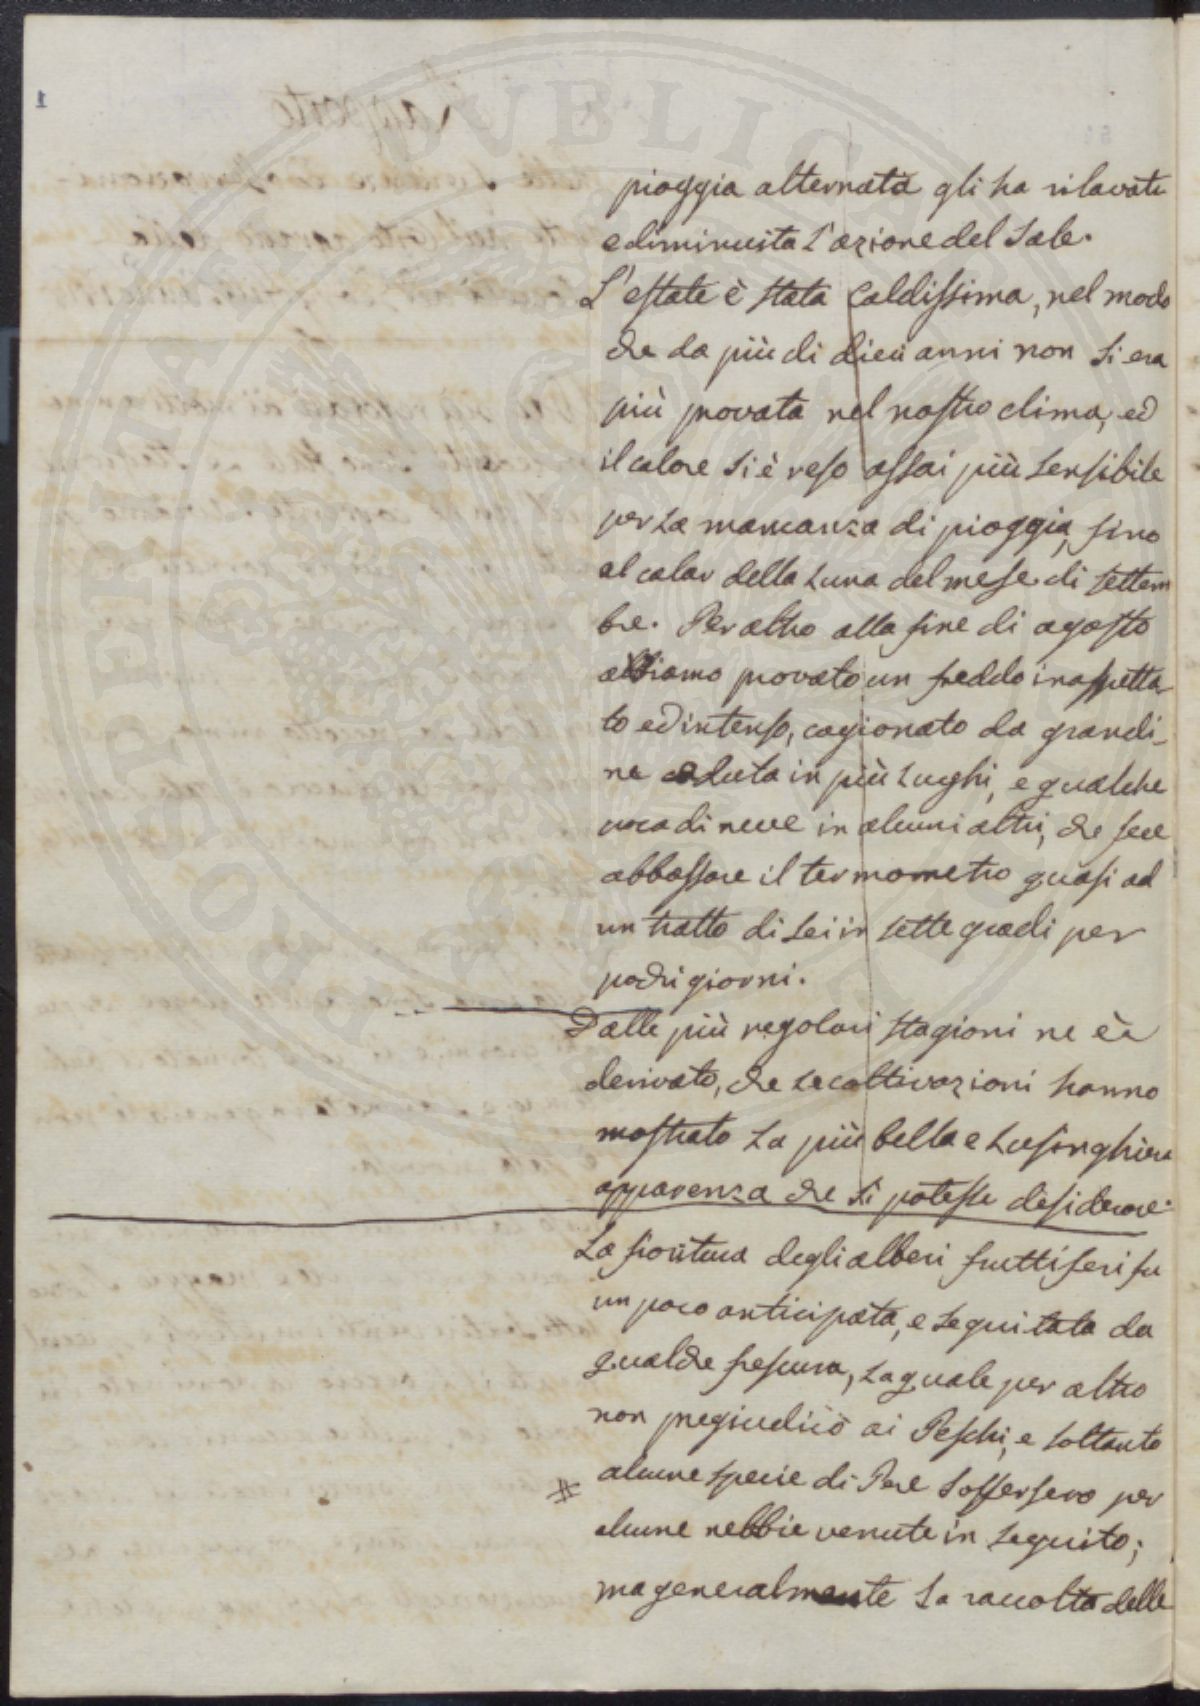 pioggia alternata gli ha rilavati
e diminuita l'azione del sale.
L'estate è stata caldissima, nel modo
che da più di dieci anni non si era
più provata nel nostro clima, ed
il calore si è reso assai più sensibile
per la mancanza di pioggia, fino
al calar della Luna del mese di settem
bre. Per altro alla fine di agosto
abbiamo provato un freddo inaspetta-
to ed intenso, cagionato da grandi-
ne caduta in più luoghi, e qualche
poca di neve in alcuni altri, che fece
abbassare il termometro quasi ad
un tratto di sei in sette gradi per
pochi giorni.
Dalle più regolari stagioni ne è
derivato, che le coltivazioni hanno
mostrato la più bella e lusinghiera
apparenza che si potesse desiderare.
La fioritura degli alberi fruttiferi fu
un poco anticipata, e seguitata da
qualche frescura, la quale per altro
non pregiudicò ai Peschi, e soltanto
alcune specie di Pere soffersero per
alcune nebbie venute in seguito;
ma generalmente la raccolta delle